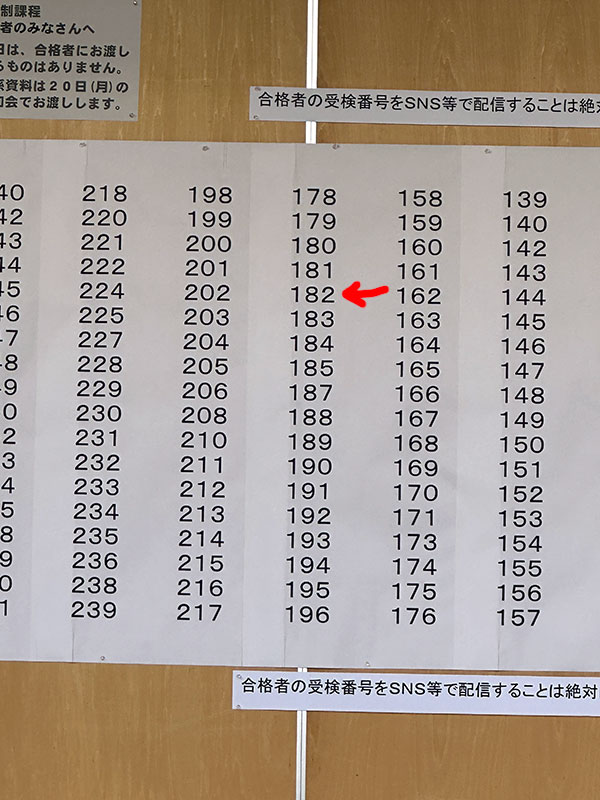 制課程
者のみなさんへ
日は、合格者にお渡し
るものはありません。
資料は20日(月)の
会でお渡しします。
合格者の受検番号をSNS等で配信することは絶対
40 218 198 178 158 139
42 220 199 179 159 140
43 221 200 180 160 142
44 222 201 181 161 143
45 224 202 182 162 144
46 225 203 183 163 145
47 227 204 184 164 146
48 228 205 185 165 147
49 229 206 187 166 148
0 230 208 188 167 149
2 231 210 189 168 150
3 232 211 190 169 151
4 233 212 191 170 152
5 234 213 192 171 153
8 235 214 193 173 154
9 236 215 194 174 155
0 238 216 195 175 156
1 239 217 196 176 157
合格者の受検番号をSNS等で配信することは絶対